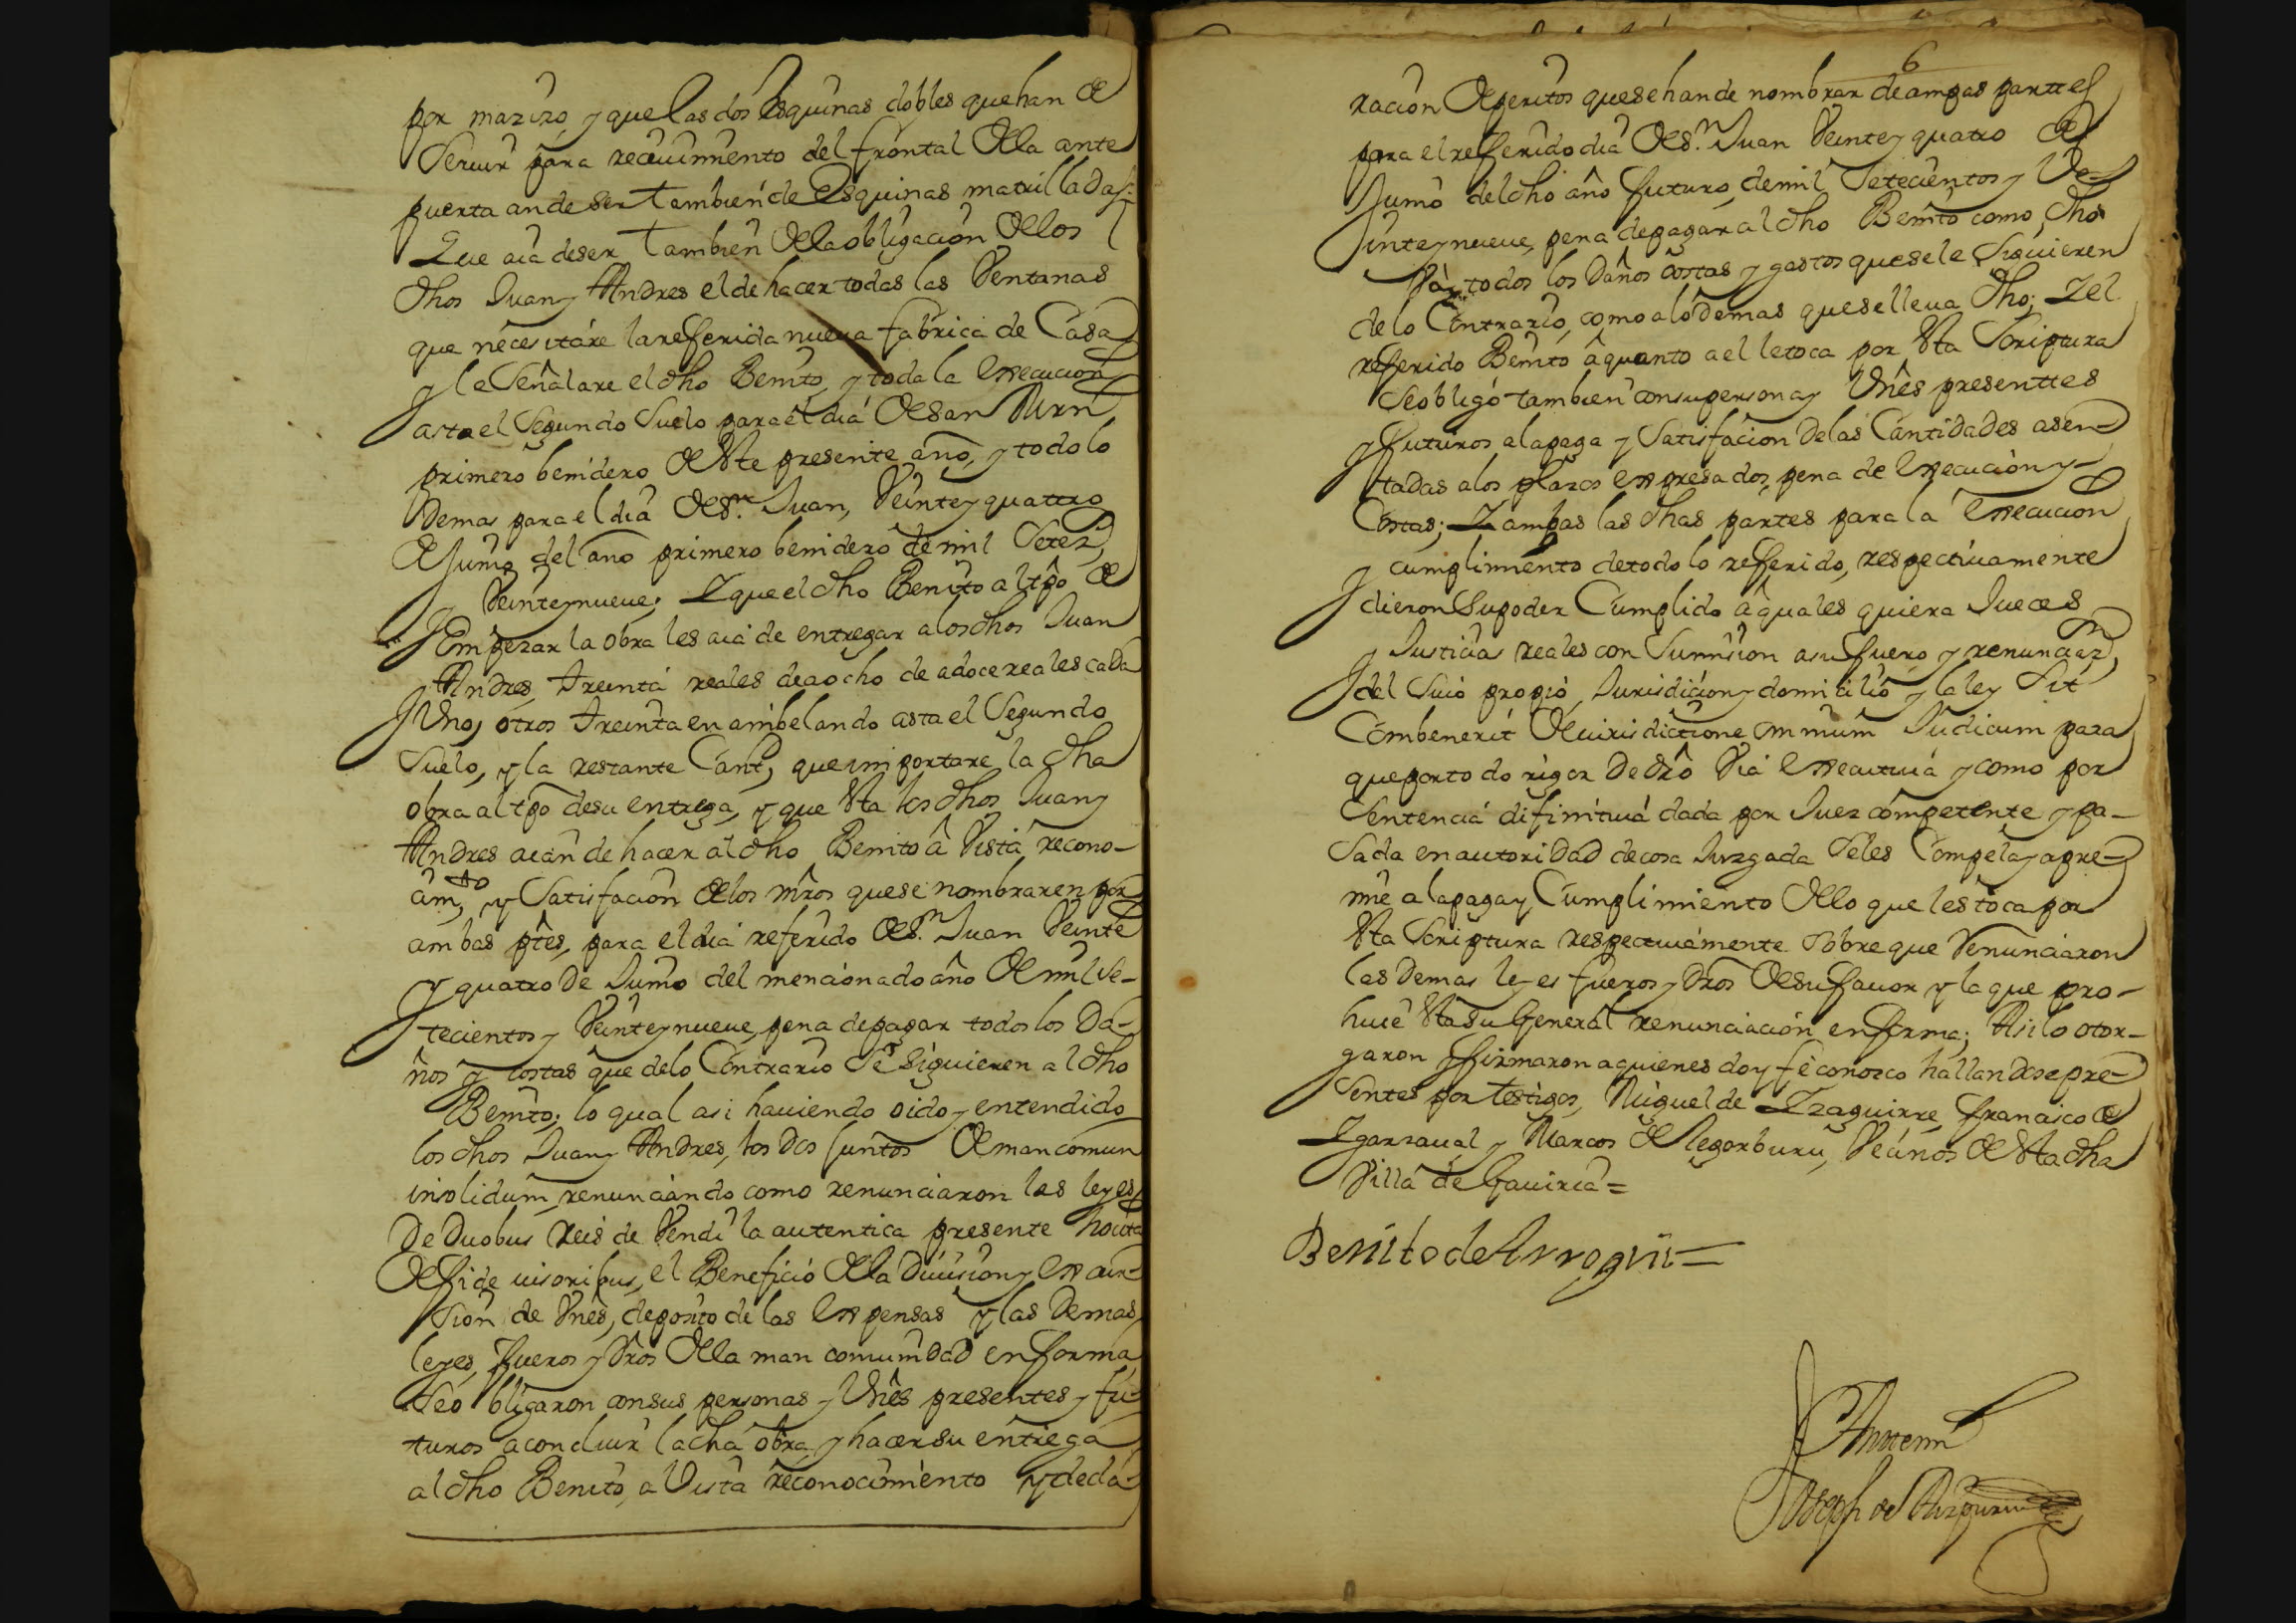 por mazizo, y que las dos esquinas dobles que han de
Seruir para receuimiento del frontal de la ante
puerta an de ser tambien de esquinas matrilladas:
Que aia de ser tambien de la obligacion de los
dhos Juan y Andres el de hacer todas las Ventanas
que necesitáre la refferida nueva fabrica de Casa
y le Señalare el dho Benito, y toda la execucion
asta el Segundo Suelo para el dia de San Mrn
primero benidero de este presente año, y todo lo
Demas para el dia de Sn. Juan, Veinte y quattro
de Junio del año primero benidero de mil Setezs,
Veinte y nueue; Y que el dho Benito al tpo de
Empezar la obra les aia de entregar a los dhos Juan
y Andres, treinta reales de a ocho de a doce reales cada
Uno, y otros treinta en anibelando asta el Segundo
Suelo, y la restante Cantd, que importare la dha
obra al tpo de su entrega, y que esta los dhos Juan y
Andres aian de hacer al dho Benito â Vista recono-
cimto, y Satisfacion de los mros que se nombraren por
ambas ptes, para el dia referido de Sn. Juan Veinte
y quatro de Junio del mencionado año de mil Se-
tecientos y Veinte y nueue, pena de pagar todos los Da-
ños y costas que de lo Contrario Se Siguieren al dho
Benito; lo qual asi hauiendo oido y entendido
los dhos Juan y Andres, los dos juntos de mancomun
insolidum, renunciando como renunciaron las leyes
De Duobus Reis de Vendi la autentica presente hocita
de fide iusoribus, el Beneficio de la Diuision y excur-
sion de Vnes, deposito de las expensas y las Demas
leyes, fueros y dros de la mancomunidad en fforma
Se obligaron con sus personas y Vnes presentes y fu-
turos a concluir la dha obra y hacer su entrega
al dho Benito, a Vista reconocimiento y decla-
6
racion de peritos que se han de nombrar de ampas parttes
para el refferido dia de Sn. Juan Veinte y quatro de
Junio del dho año futuro, de mil Setecientos y Ve-
inte y nueue, pena de pagar al dho Benito como dho
Va, todos los Daños costas y gastos que se le Siguieren
de lo Contrario, como a lo demas que se lleua dho; Y el
refferido Benito â quanto a el le toca por esta Scriptura
Se obligó tambien con su persona y Vnes presenttes
y ffuturos a la paga y Satisfacion de las Cantidades asen-
tadas a los plazos expresados, pena de execucion y
Costas; Y ambas las dhas partes para la execucion
y cumplimiento de todo lo refferido, respectiuamente
dieron Su poder Cumplido a quales quiera Jueces
y Justicias reales con Sumision a su fuero y renunciazn,
del Suio propio, Jurisdicion y domicilio y la ley Sit
Combenerit de iurisdictione omnium Judicum para
que por todo rigor de dro Via executiua y como por
Sentencia difinitiua dada por Juez competente y pa-
Sada en autoridad de cosa Juzgada Se les Compela y apre-
mie a la paga y Cumplimiento de lo que les toca por
esta Scriptura respectiuamente Sobre que Renunciaron
las Demas leyes fueros y dros de su ffauor y la que pro-
huie esta su General renunciacion en fforma; Asi lo otor-
garon y ffirmaron a quienes doy fe conozco hallandose pre-
Sentes por testigos, Miguel de Yzaguirre, ffrancisco de
Ygarzaual y Marcos de Legorburu, Vecinos de esta dha
Villa de Gauiria =
Benito de Arregui =
Antemi
Joseph de Aizpuru